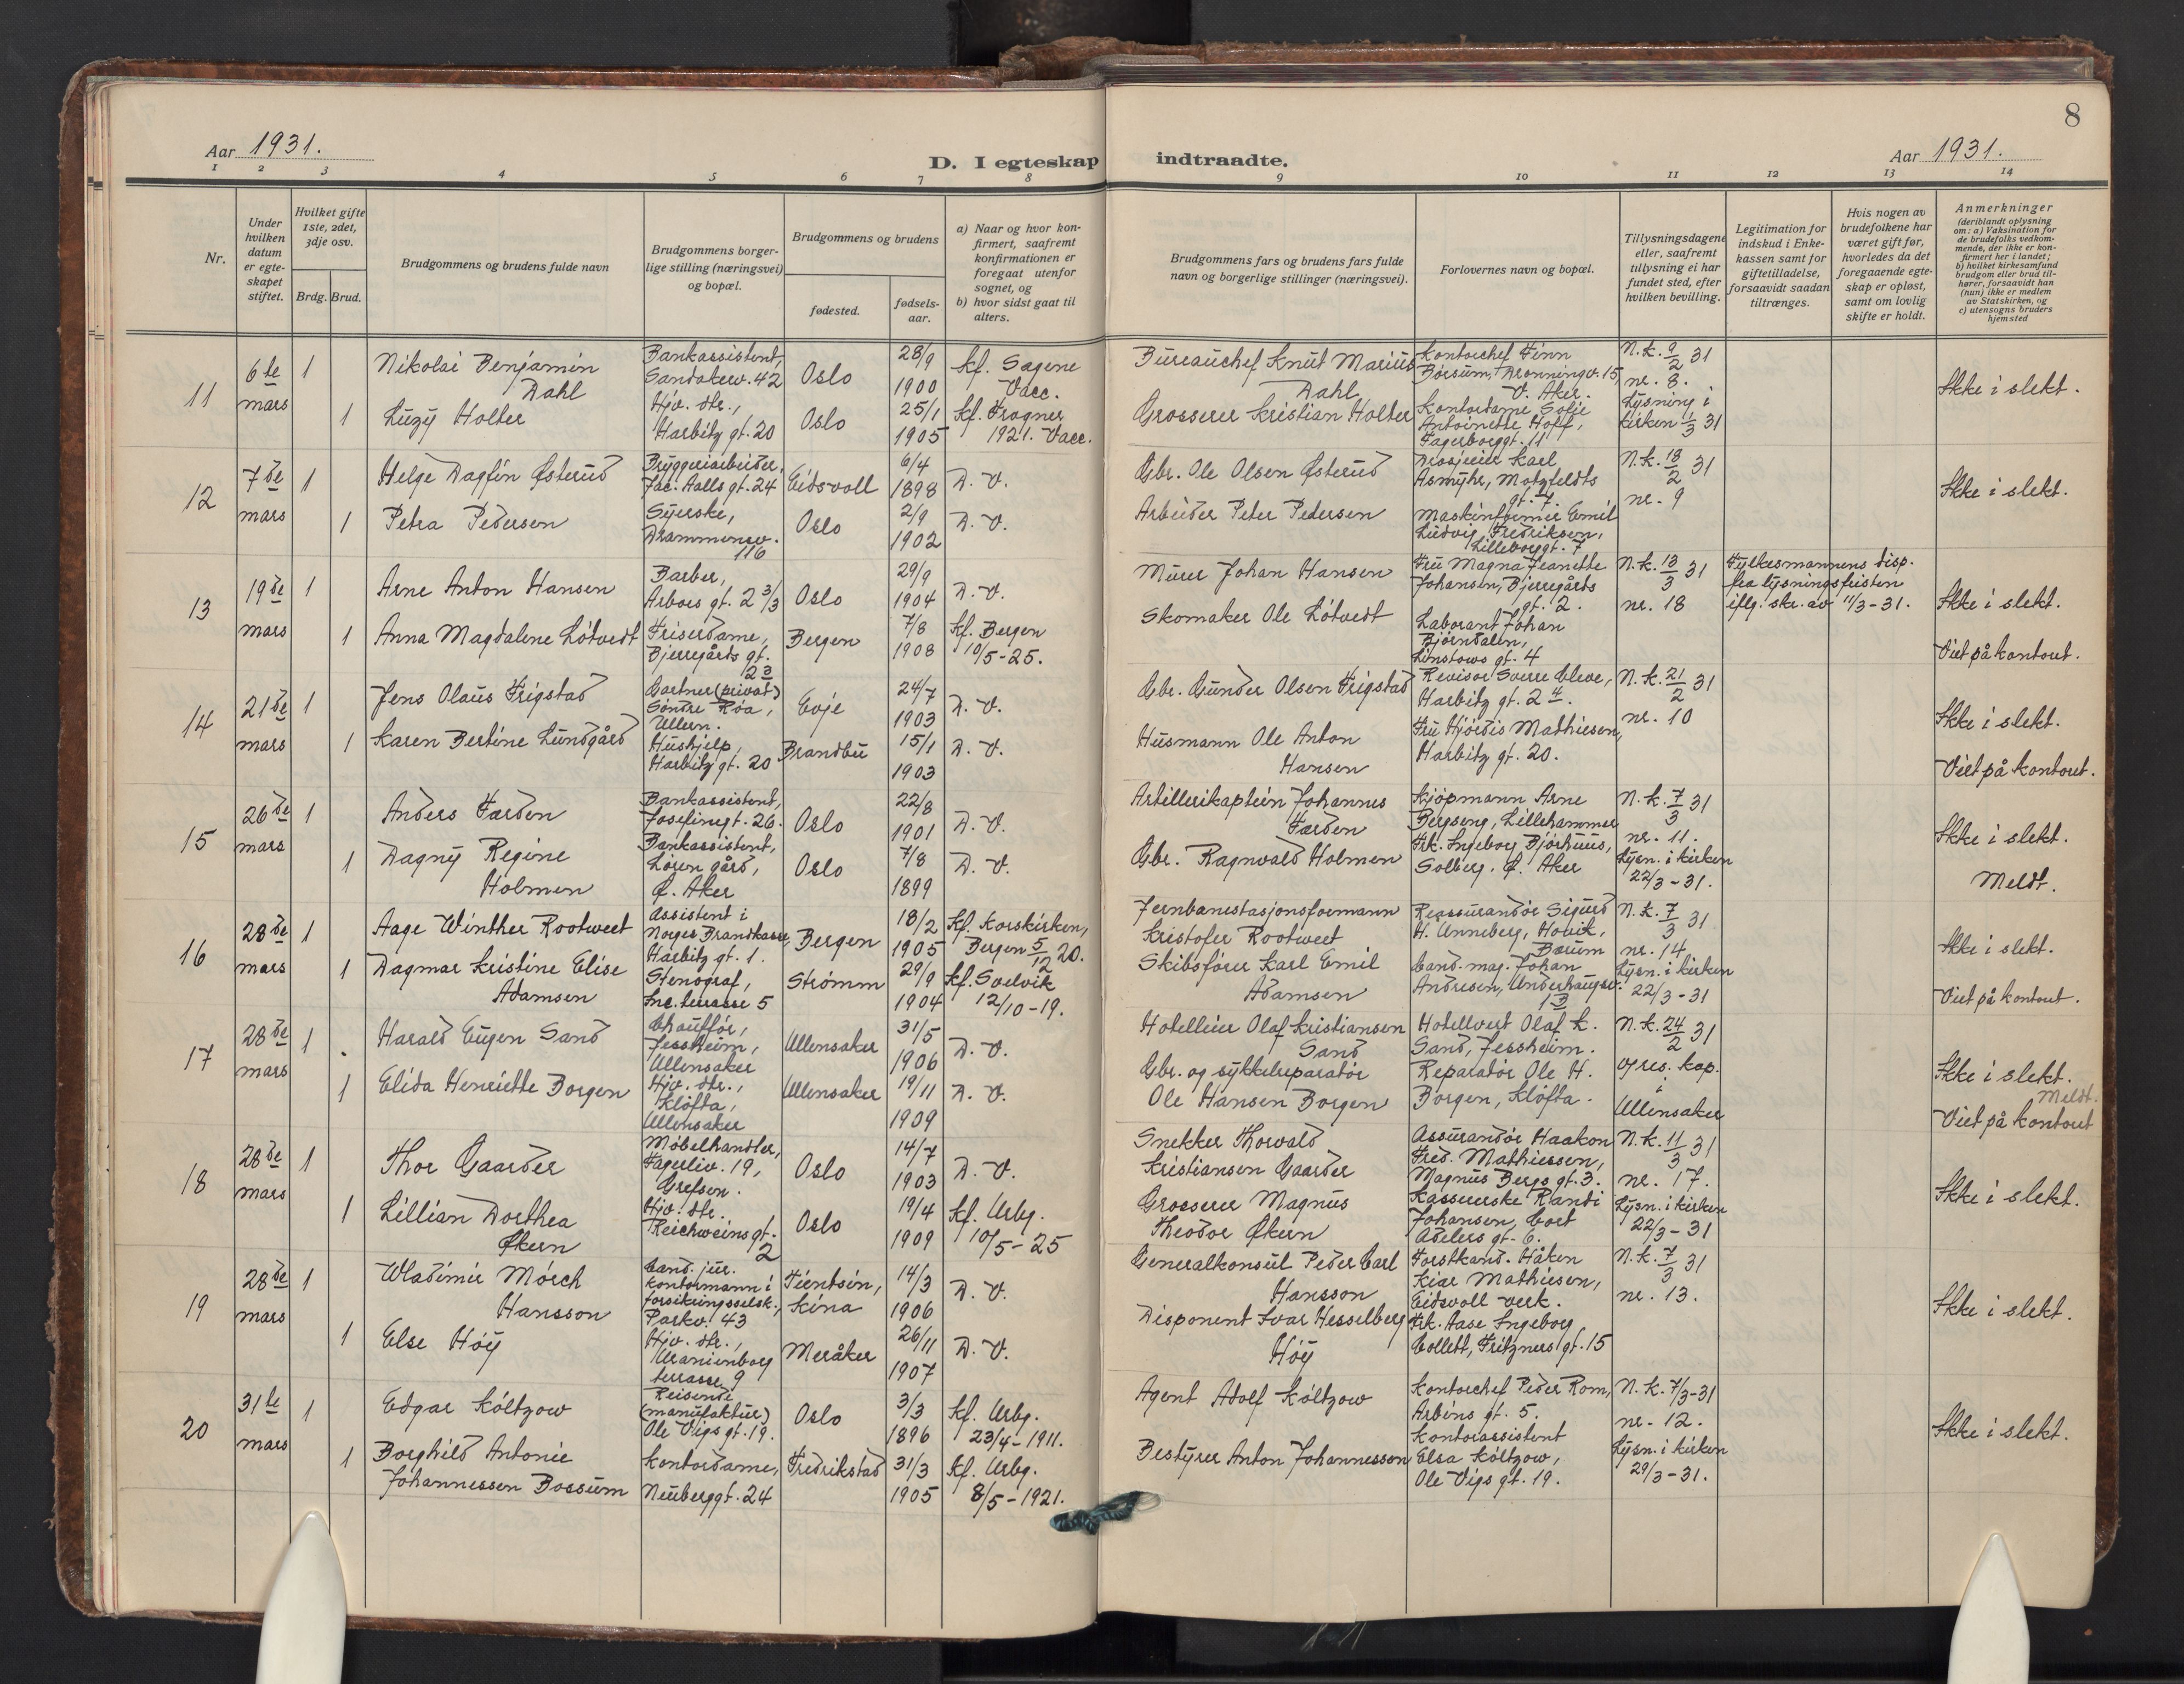 8
Aar 1931.
D. I egteskap indtraadte.
Aar 1931.
1 2 3 4 5 6 7 8 9 10 11 12 13 14
Nr.
Under hvilken datum er egteskapet stiftet.
Hvilket gifte 1ste, 2det, 3dje osv.
Brdg. Brud.
Brudgommens og brudens fulde navn
Brudgommens borgerlige stilling (næringsvei) og bopæl.
Brudgommens og brudens
fødested.
fødselsaar.
a) Naar og hvor konfirmert, saafremt konfirmationen er foregaat utenfor sognet, og
b) hvor sidst gaat til alters.
Brudgommens fars og brudens fars fulde navn og borgerlige stillinger (næringsvei).
Forlovernes navn og bopæl.
Tillysningsdagene eller, saafremt tillysning ei har fundet sted, efter hvilken bevilling.
Legitimation for indskud i Enkekassen samt for giftetilladelse, forsaavidt saadan tiltrænges.
Hvis nogen av brudefolkene har været gift før, hvorledes da det foregaaende egteskap er opløst, samt om lovlig skifte er holdt.
Anmerkninger
(deriblandt oplysning om: a) Vaksination for de brudefolks vedkommende, der ikke er konfirmert her i landet; b) hvilket kirkesamfund brudgom eller brud tilhører, forsaavidt han (hun) ikke er medlem av Statskirken, og c) utensogns bruders hjemsted
11
6te mars
1
Nikolai Benjamin Dahl
Bankassistent, Sandakerv. 42
Oslo
28/9 1900
Kf. Sagene Vacc.
Bureauchef Knut Marius Dahl
Kontorchef Finn Børsum, Dronningv. 15, V. Aker.
N.k. 9/2 31
nr. 8.
Lysning i kirken 1/3 31
Ikke i slekt.
1
Luzy Holter
Hjv. dtr., Harbitz gt. 20
Oslo
25/1 1905
Kf. Frogner 1921. Vacc.
Grosserer Kristian Holter
Kontordame Sofie Antoinette Hoff, Fagerborggt. 11
12
7de mars
1
Helge Dagfin Østerud
Bryggeriarbeider, Jac. Aalls gt. 24
Eidsvoll
6/4 1898
D. V.
Gbr. Ole Olsen Østerud
Drosjeeier Karl Asmyhr, Motzfeldts gt. 7.
N.k. 18/2 31
nr. 9
Ikke i slekt.
1
Petra Pedersen
Syerske, Drammensv. 116
Oslo
2/9 1902
D. V.
Arbeider Peter Pedersen
Maskinformer Emil Ludvig Fredriksen, Lilleborggt. 7
13
19de mars
1
Arne Anton Hansen
Barber, Arbos gt. 2 3/3
Oslo
29/9 1904
D. V.
Murer Johan Hansen
Fru Magna Jeanette Johansen, Bjerregårds gt. 2.
N.k. 13/3 31
nr. 18
Fylkesmannens disp. fra lysningsfristen iflg. skr. av 11/3-31.
Ikke i slekt.
1
Anna Magdalene Løtvedt
Friserdame, Bjerregårds gt. 23
Bergen
7/8 1908
Kf. Bergen 10/5-25.
Skomaker Ole Løtvedt
Laborant Johan Bjørndalen, Linstows gt. 4
Viet på kontoret.
14
21de mars
1
Jens Olaus Frigstad
Gartner (privat) Søndre Røa, Ullern.
Evje
24/7 1903
D. V.
Gbr. Gunder Olsen Frigstad
Revisor Sverre Cleve, Harbitz gt. 2 4.
N.k. 21/2 31
nr. 10
Ikke i slekt.
1
Karen Bertine Lundgård
Hushjelp, Harbitz gt. 20
Brandbu
15/1 1903
D. V.
Husmann Ole Anton Hansen
Fru Hjørdis Mathiesen, Harbitz gt. 20.
Viet på kontoret.
15
26de mars
1
Anders Farden
Bankassistent, Josefinegt. 26.
Oslo
22/8 1901
D. V.
Artillerikaptein Johannes Farden
Kjøpmann Arne Bergseng, Lillehammer
N.k. 7/3 31
nr. 11.
Lysn. i kirken 22/3-31.
Ikke i slekt.
1
Dagny Regine Holmen
Bankassistent, Løren gård, Ø. Aker
Oslo
7/8 1899
D. V.
Gbr. Ragnvald Holmen
Frk. Ingeborg Bjørhuus, Solberg. Ø. Aker
Meldt.
16
28de mars
1
Aage Winther Rootweet
Assistent i Norges Brandkasse, Harbitz gt. 1.
Bergen
18/2 1905
Kf. Korskirken, Bergen 5/12 20.
Jernbanestasjonsformann Kristofer Rootweet
Reassurandør Sigurd H. Anneberg, Høvik, Bærum
N.k. 7/3 31
nr. 14
Lysn. i kirken 22/3-31
Ikke i slekt.
1
Dagmar Kristine Elise Adamsen
Stenograf, Inc. terrasse 5
Strømm
29/9 1904
Kf. Svelvik 12/10-19.
Skibsfører Karl Emil Adamsen
Cand. mag. Johan Andresen, Underhaugsv. 13
Viet på kontoret.
17
28de mars
1
Harald Eugen Sand
Chauffør, Jessheim, Ullensaker
Ullensaker
31/5 1906
D. V.
Hotelleier Olaf Kristiansen Sand
Hotellvert Olaf K. Sand, Jessheim.
N.k. 24/2 31
og res. kap. i Ullensaker
Ikke i slekt.
Meldt.
1
Elida Henriette Borgen
Hjv. dtr., Kløfta, Ullensaker
Ullensaker
19/11 1909
D. V.
Gbr. og sykkelreparatør Ole Hansen Borgen
Reparatør Ole H. Borgen, Kløfta.
Viet på kontoret
18
28de mars
1
Thor Gaarder
Møbelhandler, Fagerliv. 19, Grefsen.
Oslo
14/7 1903
D. V.
Snekker Thorvald Kristiansen Gaarder
Assurandør Haakon Fred. Mathiessen, Magnus Bergs gt. 3.
N.k. 11/3 31
nr. 17.
Lysn. i kirken 22/3-31
Ikke i slekt.
1
Lillian Dorthea Økern
Hjv. dtr. Reichweins gt. 2
Oslo
19/4 1909
Kf. Urbg. 10/5-25
Grosserer Magnus Theodor Økern
Kassererske Randi Johansen, Cort Adelers gt. 6.
19
28de mars
1
Wladimir Mørch Hansson
Cand. jur. Kontormann i forsikringsselsk., Parkv. 43
Tientsin, Kina
14/3 1906
D. V.
Generalkonsul Peder Carl Hansson
Forstkand. Håken Kiær Mathiesen, Eidsvoll verk.
N.k. 7/3 31
nr. 13.
Ikke i slekt.
1
Else Høy
Hjv. dtr., Uranienborg terrasse 9
Meråker
26/11 1907
D. V.
Disponent Ivar Hesselberg Høy
Frk. Aase Ingeborg Collett, Fritzners gt. 15
20
31te mars
1
Edgar Køltzow
Reisende (manufaktur) Ole Vigs gt. 19.
Oslo
3/3 1896
Kf. Urbg. 23/4-1911.
Agent Adolf Køltzow
Kontorchef Peder Rom, Arbins gt. 5.
N.k. 7/3-31
nr. 12.
Lysn. i kirken 29/3-31.
Ikke i slekt.
1
Borghild Antonie Johannessen Bossum
Kontordame, Neuberggt. 24
Fredrikstad
31/3 1905
Kf. Urbg. 8/5-1921.
Bestyrer Anton Johannesson
Kontorassistent Elsa Køltzow, Ole Vigs gt. 19.